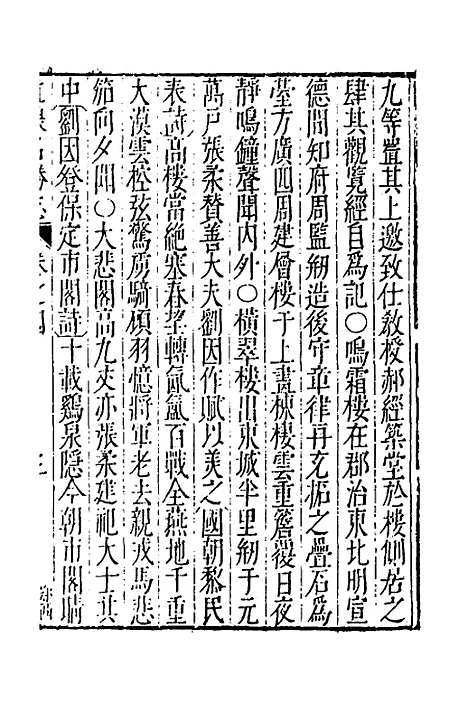 九等置其上邀致仕敎授郝經築堂於樓側居之
肆其觀覽經自爲記〇鳴霜樓在郡治東北明宣
德間知府周監剏造後守章律再充拓之疊石爲
䑓方廣四周建層樓于上畫棟棲雲重簷覆日夜
靜鳴鐘聲聞内外〇橫翠樓出東城半里剏于元
萬戸張柔贊善大夫劉因作賦以美之國朝黎民
表詩高樓當絶塞春望轉氤氳百戰全燕地千重
大漠雲松弦驚虜騎頎羽憶將軍老去親戎馬悲
笳向夕聞〇大悲閣高九丈亦張柔建祀大士其
中劉因登保定市閣詩十載鷄泉隱今朝市閣晴
卷之四